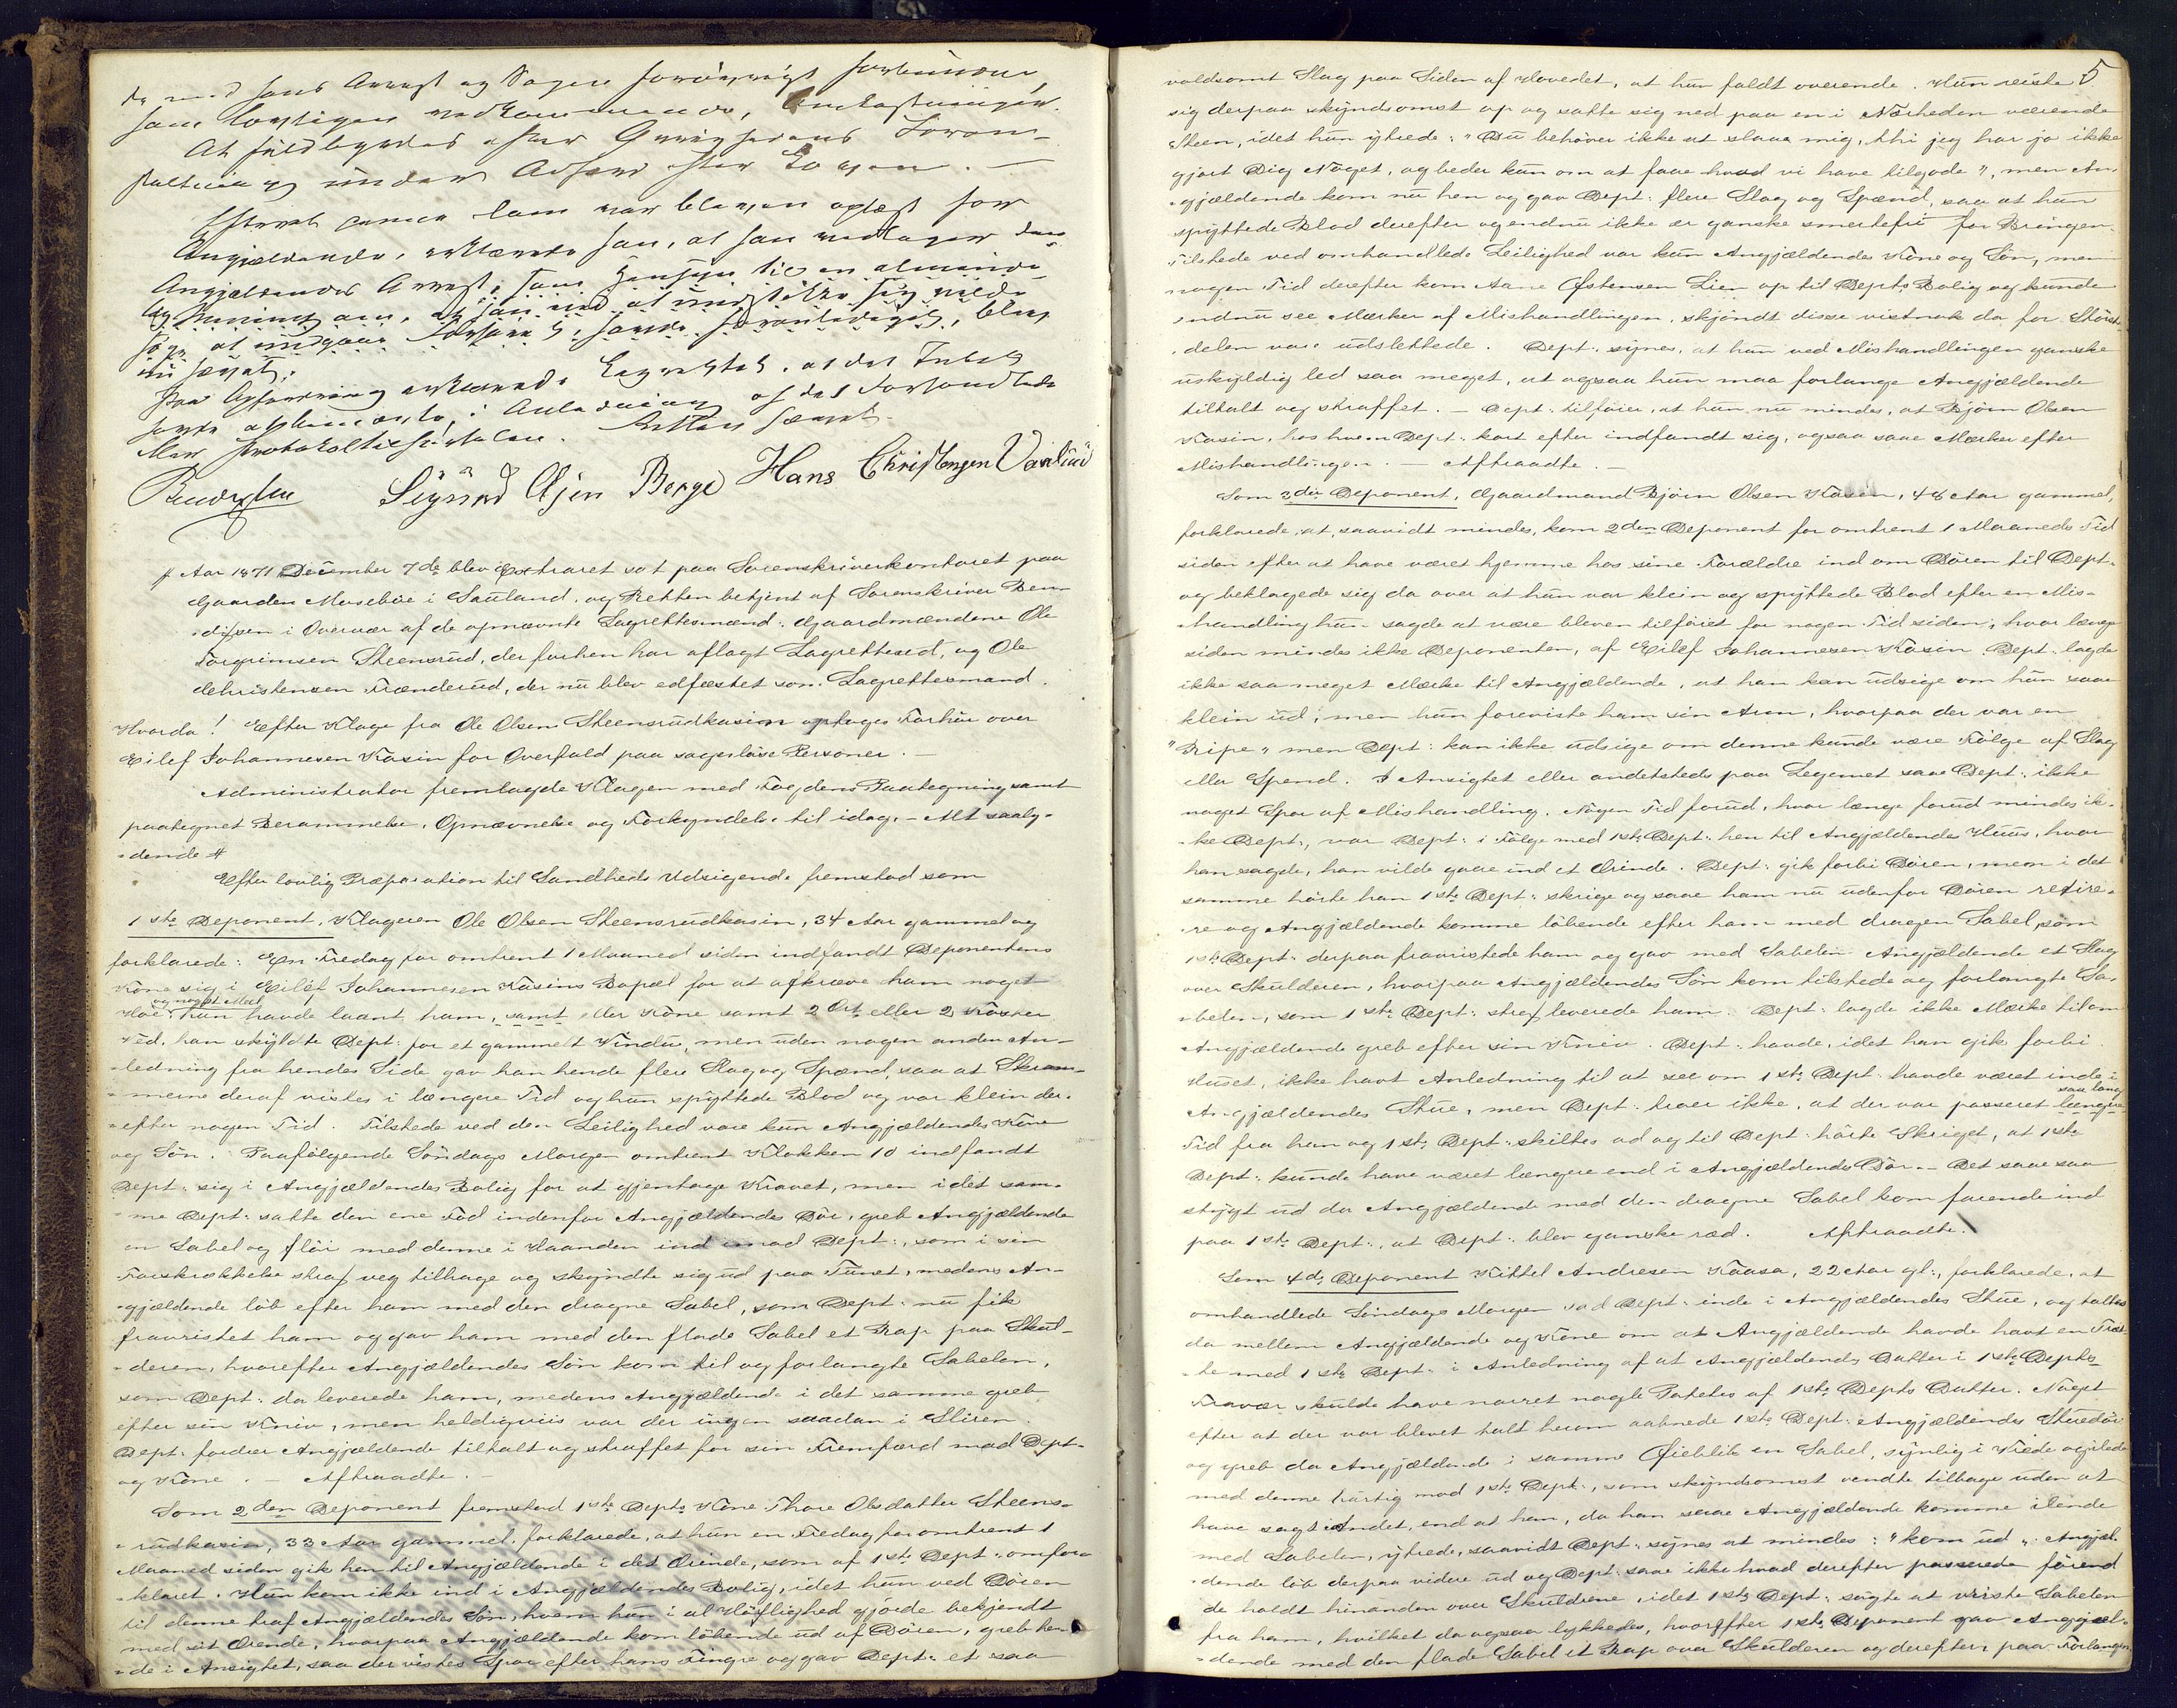 som lovligen vedkommende,
At fuldbyrdes efter Øvrighedens Foran-
staltning under Adfærd efter Loven. —
Efterat denne Dom var bleven oplæst for
Angjældende, erklærede han, at han vedtager den.
Angjældendes Arrest,
at undgaae
nu hævet.
Paa Opfordring erklærede
i Anledning af det Forhandlede
Retten hævet.
Bendixen Sigurd Hans Christensen
# Aar 1871 December 7de blev Extraret sat paa Sorenskriverkontoret paa
Gaarden Mosebøe i Sauland, og Retten betjent af Sorenskriver Ben-
-dixen i Overvær af de opnævnte Lagrettesmænd: Gaardmændene Ole
Torgrimsen Steensrud, der forhen har aflagt Lagrettesed, og Ole
Christensen Frænderud, der nu blev edfæstet som Lagrettesmand.
Hvorda! Efter Klage fra Ole Olsen Steensrudkasin optages Forhør over
Eilef Johannesen Kasin for Overfald paa sagesløse Personer. —
Administrator fremlagde Klagen med Fogdens Paategning samt
paategnet Berammelse, Opnævnelse og Forkyndelse til idag. — Alt saaly-
-dende #
Efter lovlig Præparation til Sandheds Udsigende fremstod som
1ste Deponent, Klageren Ole Olsen Steensrudkasin, 34 Aar gammel og
forklarede: En Fredag for omtrent 1 Maaned siden indfandt Deponentens
Kone sig i Eilef Johannesen Kasins Bopæl for at afkræve ham noget
og noget Meel
Høe, hun havde laant ham, samt der Kone samt 2 Ort eller 2 Kaster
Ved, han skyldte Dept: for et gammelt Vindu, men uden nogen anden An-
-ledning fra hendes Side gav han hende flere Slag og Spænd, saa at Skram-
-merne deraf vistes i længere Tid og hun spyttede Blod og var klein der-
-efter nogen Tid. Tilstede ved den Leilighed vare kun Angjældendes Kone
og Søn. Paafølgende Søndags Morgen omtrent Klokken 10 indfandt
Dept: sig i Angjældendes Bolig for at gjentage Kravet, men idet sam-
-me Dept: satte den ene Fod indenfor Angjældendes Dør, greb Angjældende
en Sabel og fløi med denne i Haanden ind imod Dept:, som i sin
Forskrækkelse strax veg tilbage og skyndte sig ud paa Tunet, medens An-
-gjældende løb efter ham med den dragne Sabel, som Dept: nu fik
fravristet ham og gav ham med den flade Sabel et Rap paa Skul-
-deren, hvorefter Angjældendes Søn kom til og forlangte Sabelen,
som Dept: da leverede ham, medens Angjældende i det samme greb
efter sin Kniv, men heldigviis var der ingen saadan i Sliren.
Dept: fordrer Angjældende tiltalt og straffet for sin Fremfærd mod Dept-
og Kone. — Aftraadte. —
Som 2den Deponent fremstod 1ste Depts Kone Thore Olsdatter Steens-
-rudkasin, 33 Aar gammel, forklarede, at hun en Fredag for omtrent 1
Maaned siden gik hen til Angjældende i det Ærinde, som af 1ste Dept: omfor-
-klaret. Hun kom ikke ind i Angjældendes Bolig, idet hun ved Døren
til denne traf Angjældendes Søn, hvem hun i al Høflighed gjorde bekjendt
med sit Ærende, hvorpaa Angjældende kom løbende ud af Døren, greb hen-
-de i Ansigtet, saa der vistes Spor efter hans Fingre og gav Dept: et saa
5
voldsomt Slag paa Siden af Hovedet, at hun faldt overende. Hun reiste
sig derpaa skyndsomst op og satte sig ned paa en i Nærheden værende
Steen, idet hun ytrede: "Du behøver ikke at slaae mig, thi jeg har jo ikke
gjort Dig Noget, og beder kun om at faae hvad vi have tilgode", men An-
-gjældende kom nu hen og gav Dept: flere Slag og Spænd, saa at hun
spyttede Blod derefter og endnu ikke er ganske smertefri for Bringen.
Tilstede ved omhandlede Leilighed var kun Angjældendes Kone og Søn, men
nogen Tid derefter kom Aane Østensen Lien op til Depts Bolig og kunde
endnu see Mærker af Mishandlingen, skjøndt disse vistnok da for Størst-
-delen vare udslettede. Dept: synes, at hun ved Mishandlingen ganske
uskyldig led saa meget, at ogsaa hun maa forlange Angjældende
tiltalt og straffet. — Dept: tilføier, at hun nu mindes, at Bjørn Olsen
Kasin, hos hvem Dept: kort efter indfandt sig, ogsaa saae Mærker efter
Mishandlingen. — Aftraadte. —
Som 3die Deponent, Gaardmand Bjørn Olsen Kasen, 48 Aar gammel,
forklarede, at, saavidt mindes, kom 2den Deponent for omtrent 1 Maaneds Tid
siden efter at have været hjemme hos sine Forældre ind om Døren til Dept.
og beklagede sig da over at hun var klein og spyttede Blod efter en Mis-
-handling hun sagde at være bleven tilføiet for nogen Tid siden, hvor længe
siden mindes ikke Deponenten, af Eilef Johannesen Kasin. Dept: lagde
ikke saa meget Mærke til Angjældende, at han kan udsige om hun saae
klein ud, men hun foreviste ham sin Arm, hvorpaa der var en
"Ripe" men Dept: kan ikke udsige om denne kunde være Følge af Slag
eller Spend. I Ansigtet eller andetsteds paa Legemet saae Dept: ikke
noget Spor af Mishandling. Nogen Tid forud, hvor længe forud mindes ik-
-ke Dept:, var Dept: i Følge med 1ste Dept: hen til Angjældendes Huus, hvor
han sagde, han vilde gaae ind et Ærinde. Dept: gik forbi Døren, men i det
samme hørte han 1ste Dept: skrige og saae ham nu udenfor Døren retire-
-re og Angjældende komme løbende efter ham med dragen Sabel som
1ste Dept: derpaa fravristede ham og gav med Sabelen Angjældende et Slag
over Skulderen, hvorpaa Angjældendes Søn kom tilstede og forlangte Sa-
-belen, som 1ste Dept: strax leverede ham. Dept: lagde ikke Mærke til om
Angjældende greb efter sin Kniv. Dept: havde, idet han gik forbi
Huset, ikke havt Anledning til at see om 1ste Dept: havde været inde i
saa lang
Angjældendes Stue, men Dept: troer ikke, at der var passeret længere
Tid fra han og 1ste Dept: skiltes ad og til Dept: hørte Skriget, at 1ste
Dept: kunde have været længere end i Angjældendes Dør. — Det saae saa
stygt ud da Angjældende med den dragne Sabel kom farende ind
paa 1ste Dept:, at Dept: blev ganske ræd. Aftraadte.
Som 4de Deponent Kittel Andresen Kaasa, 22 Aar gl:, forklarede, at
omhandlede Søndags Morgen sad Dept: inde i Angjældendes Stue, og taltes
da mellem Angjældende og Kone om at Angjældende havde havt en Træt-
-te med 1ste Dept: i Anledning af at Angjældendes Datter i 1ste Depts
Fravær skulde have narret nogle Poteter af 1ste Depts Datter. Noget
efter at der var blevet talt herom aabnede 1ste Dept: Angjældendes Stuedør
og greb da Angjældende i samme Øieblik en Sabel, synlig i Vrede og ilede
med denne hurtig mod 1ste Dept:, som skyndsomst vendte tilbage uden at
have sagt Andet, end at han, da han saae Angjældende komme ilende
med Sabelen, ytrede, saavidt Dept: synes at mindes: "kom ud". Angjæl-
-dende løb derpaa videre ud og Dept: saae ikke hvad derefter passerede førend
de holdt hinanden over Skuldrene, idet 1ste Dept: søgte at vriste Sabelen
fra ham, hvilket da ogsaa lykkedes, hvorefter 1ste Deponent gav Angjæl-
-dende med den flade Sabel et Rap over Skulderen og derefter paa Forlangen